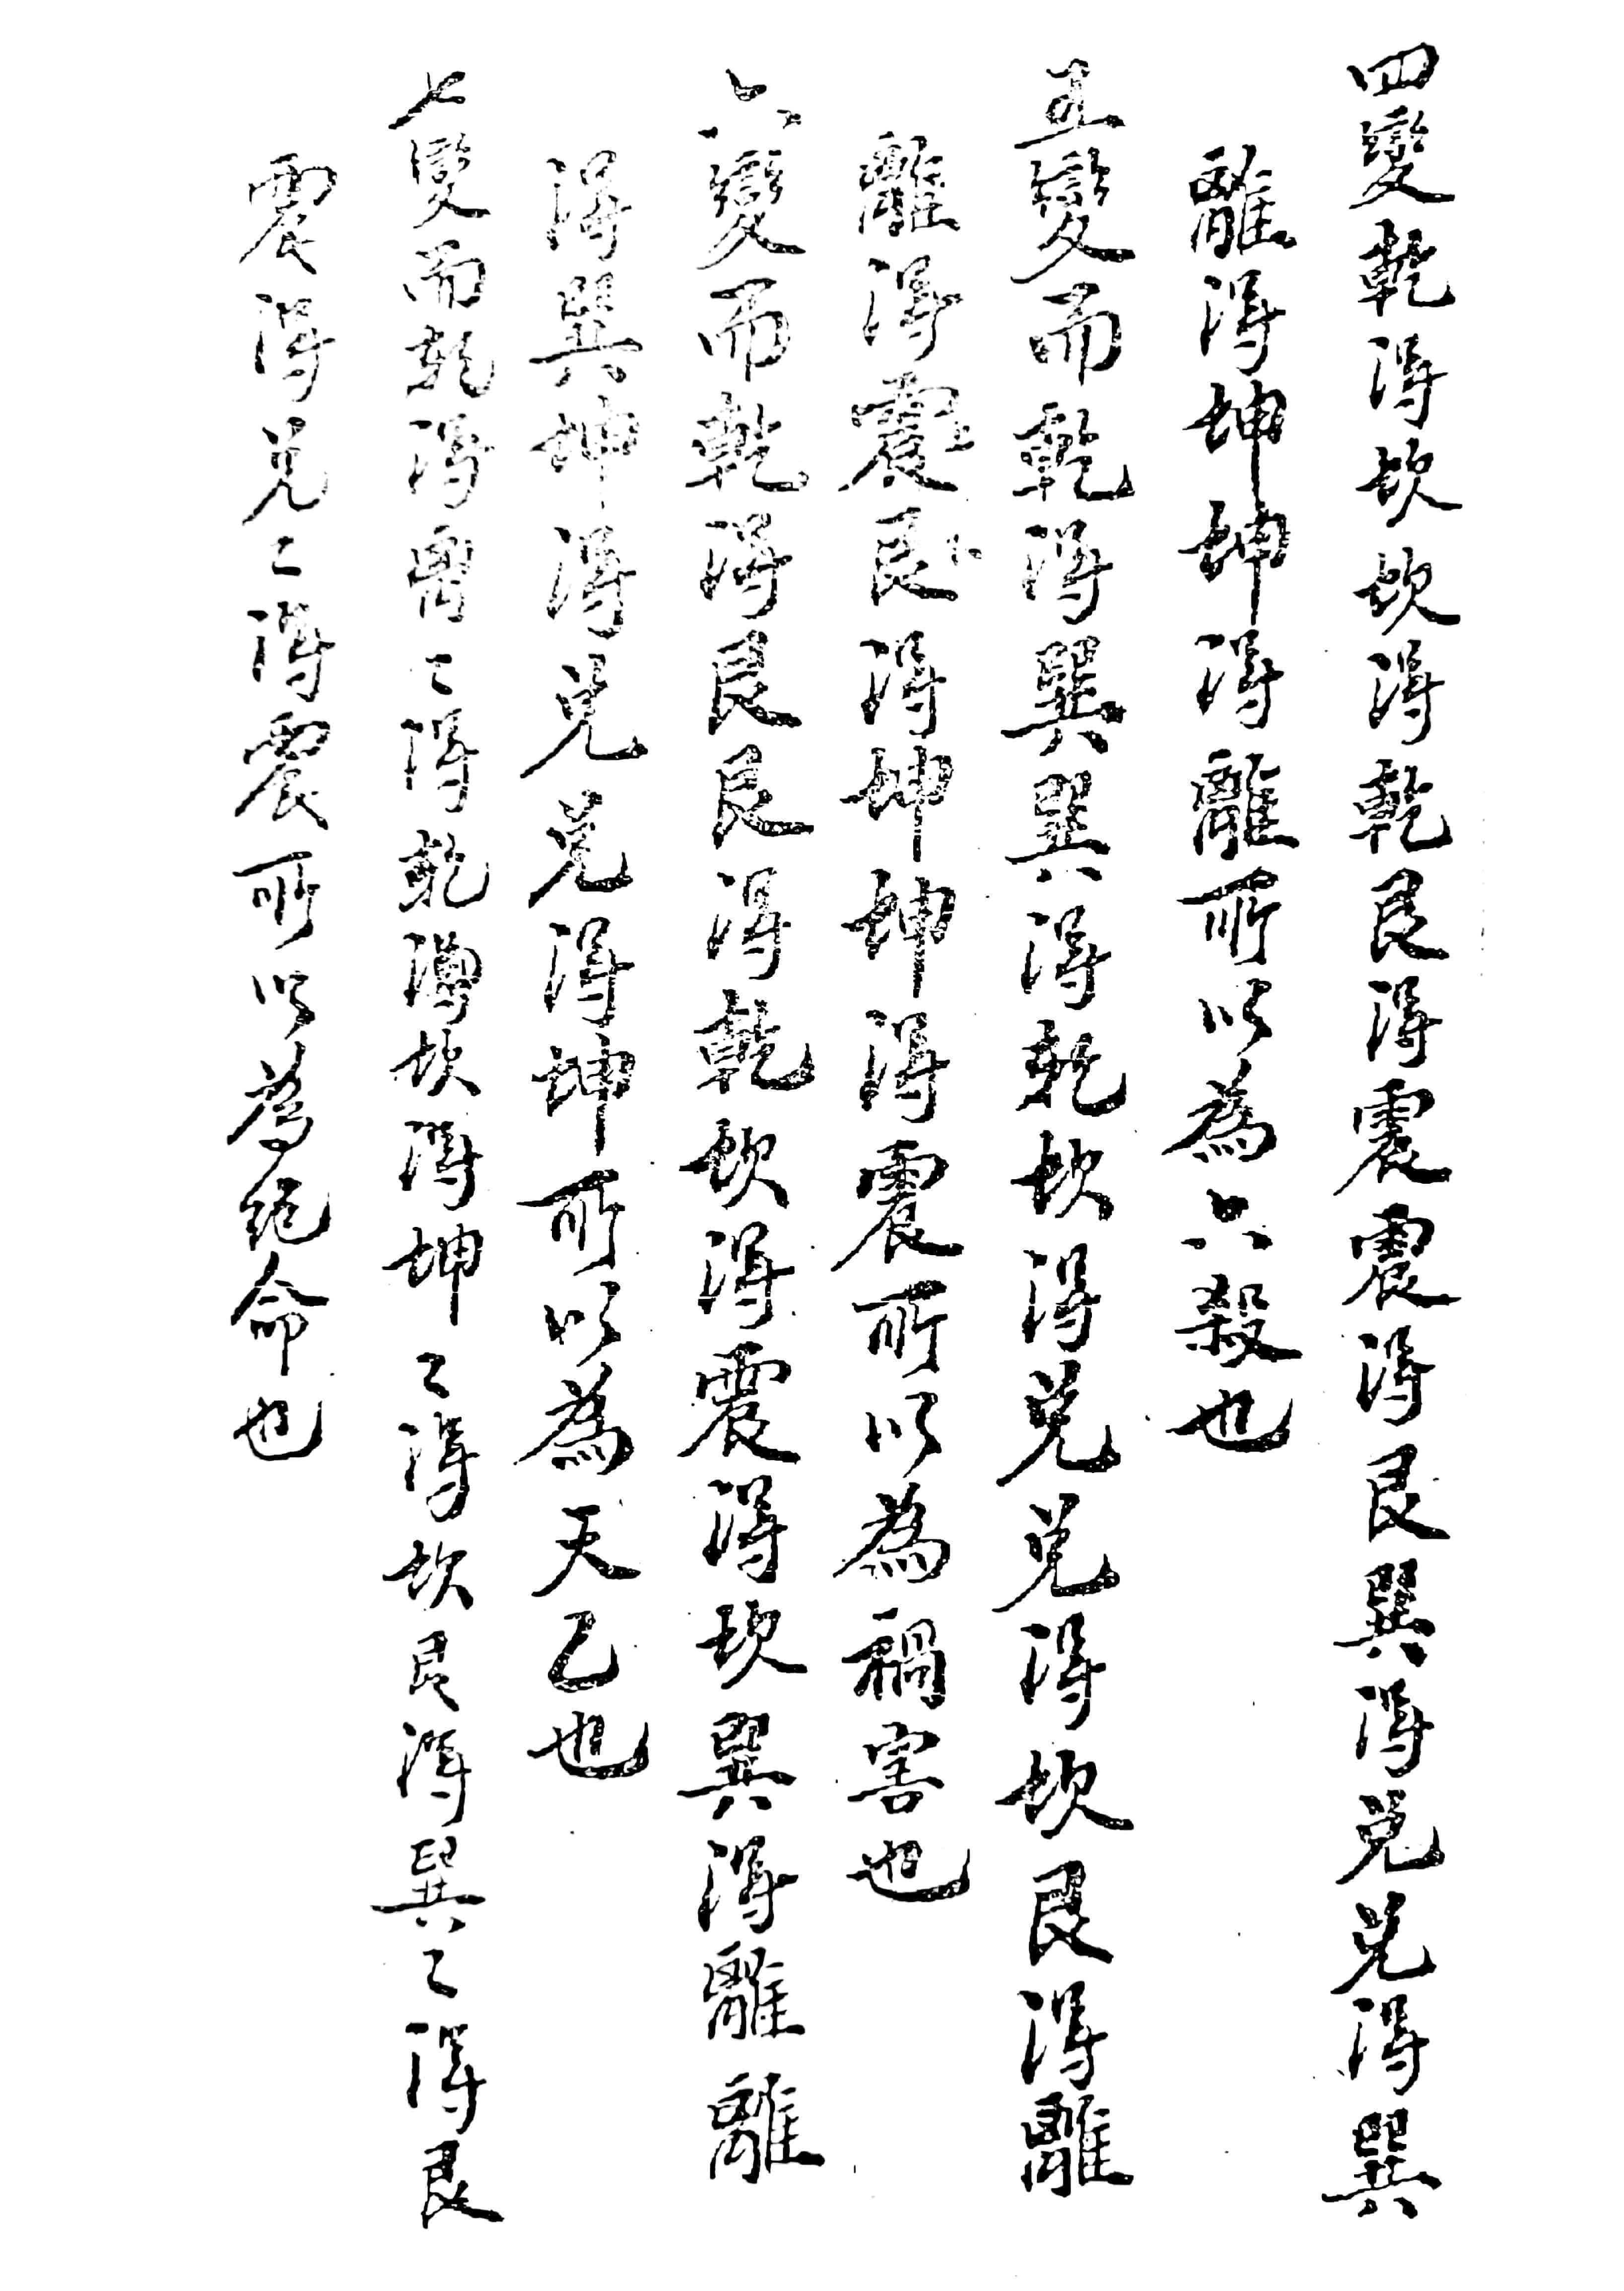 四變乾得坎坎得乾艮得震震得艮巽得兌兌得巽
離得坤坤得離所以為六殺也
五變而乾得巽巽得乾坎得兌兌得坎艮得離
離得震艮得坤坤得震所以為禍害也
六變而乾得艮艮得乾坎得震震得坎巽得離離
得巽坤得兌兌得坤所以為天乙也
七變而乾得离〻得乾坎得坤〻得坎艮得巽〻得艮
震得兌〻得震所以為絕命也